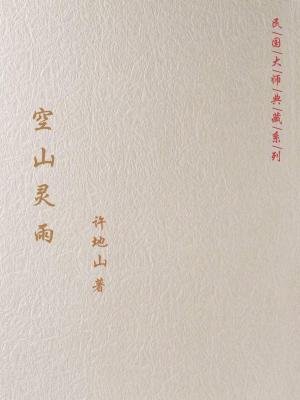 民国大师典藏系列
空山灵雨
许地山 著